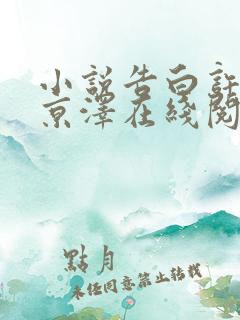 小說告白許
京澤在綫閱
點月
未經同意禁止轉載